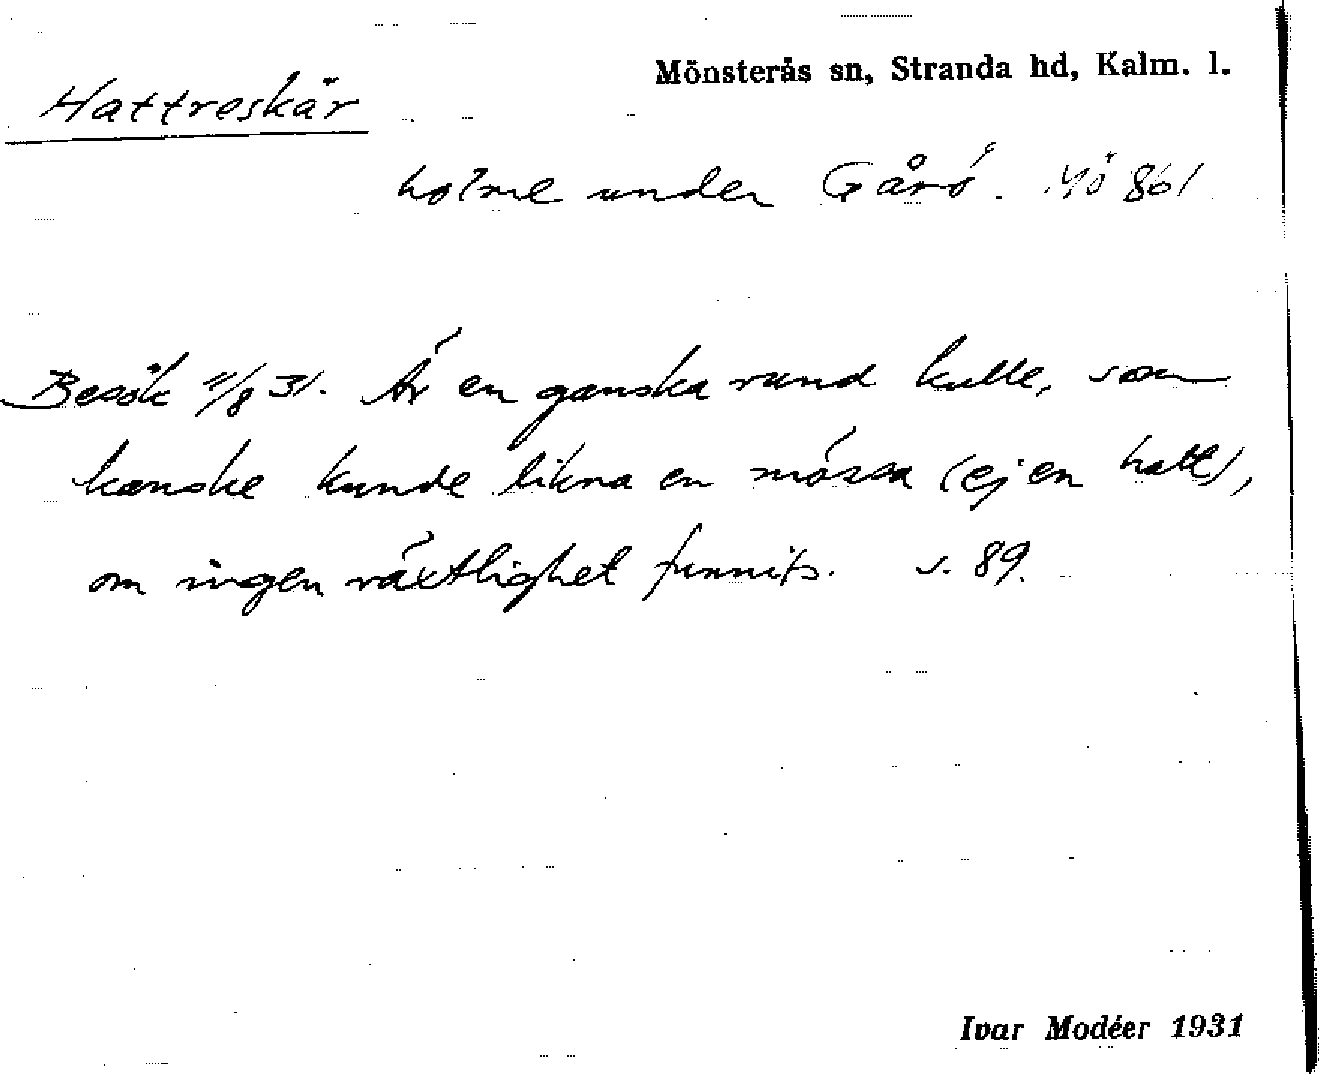 Mönsterås sn, Stranda hd, Kalm. l.
Hattreskär
holme under Gårö. Mö 861
Besök 11/8 31. Är en ganska rund kulle, som
kanske kunde likna en mössa (ej en hatt),
om ingen växtlighet funnits. s. 89.
Ivar Modéer 1931